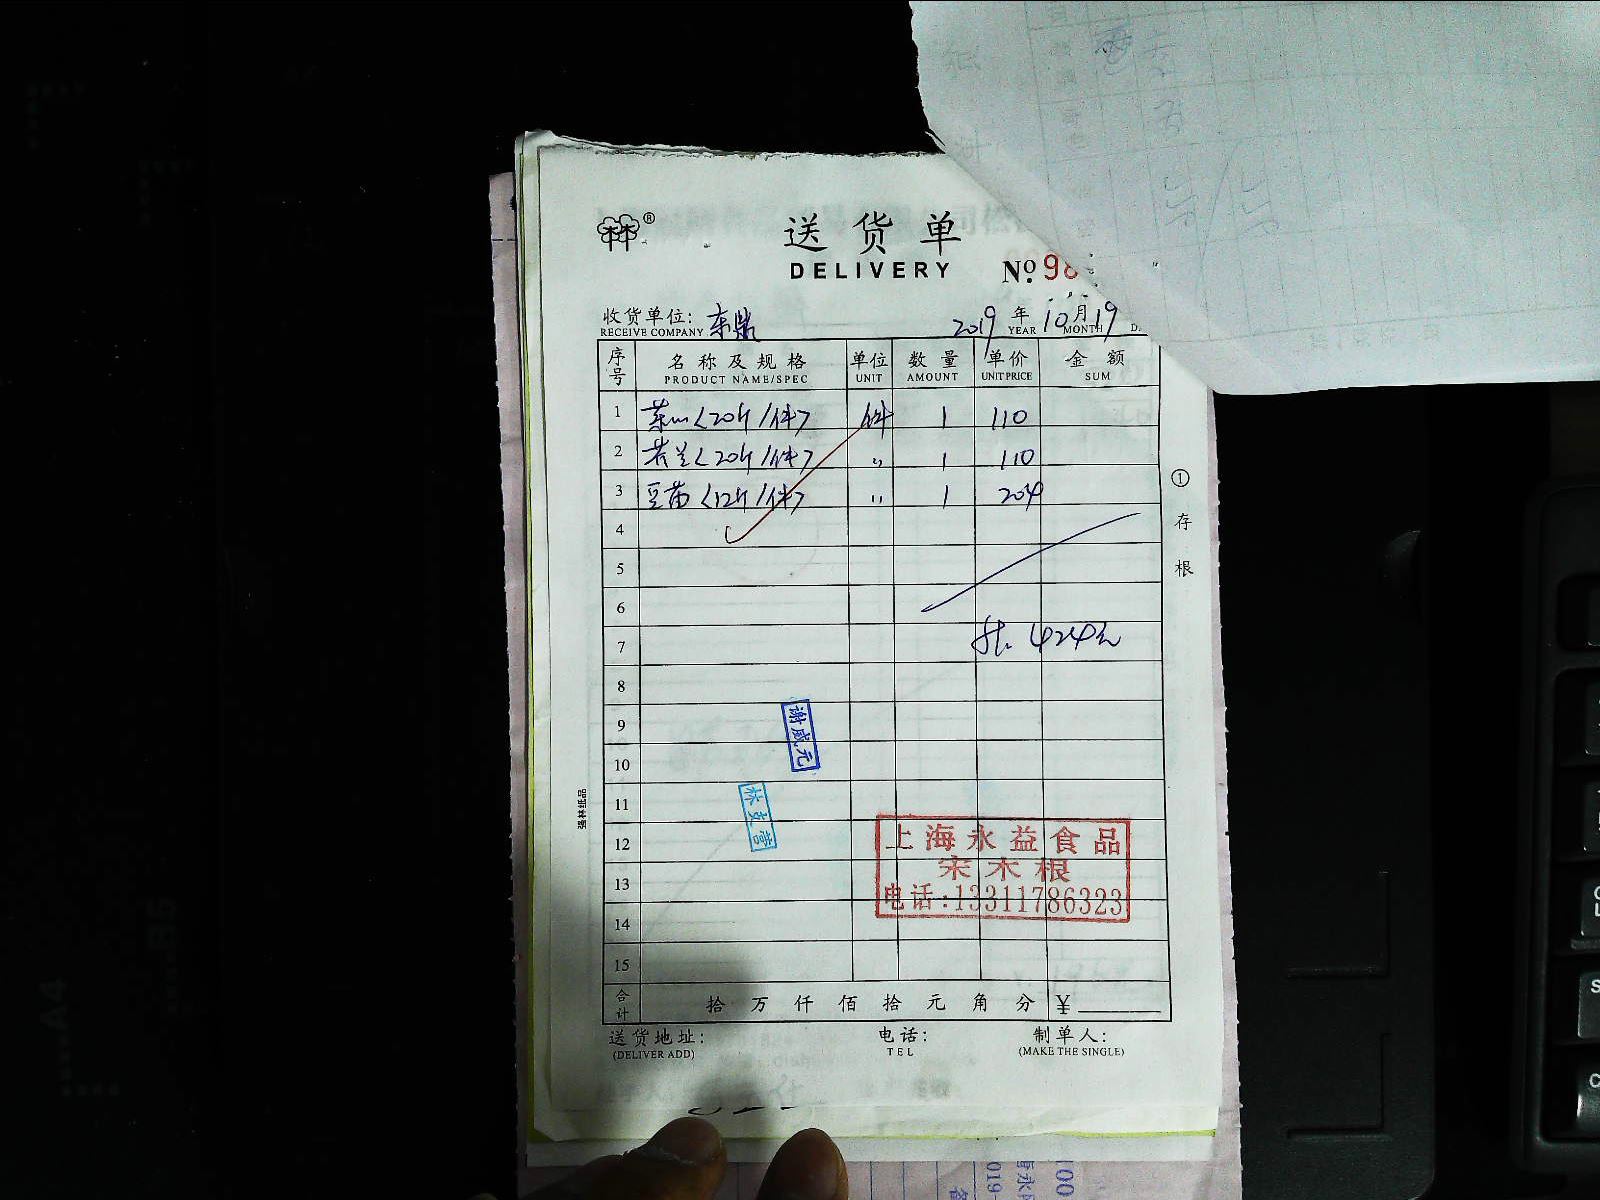 ®
送货单
DELIVERY
№ 98
收货单位: 东鼎 2019 年 10 月 19
RECEIVE COMPANY YEAR MONTH D
序号 名称及规格 单位 数量 单价 金额
PRODUCT NAME/SPEC UNIT AMOUNT UNIT PRICE SUM
1 菜心<20斤/件> 件 1 110
2 芥兰<20斤/件> 〃 1 110
3 豆苗<12斤/件> 〃 1 204
4
5
6
7 共: 424元
8
9
10
11
12
13
14
15
谢威元
林支营
上海永益食品
宋木根
电话:13311786323
合计 拾 万 仟 佰 拾 元 角 分 ¥
送货地址: 电话: 制单人:
(DELIVER ADD) TEL (MAKE THE SINGLE)
①存根
强林纸品